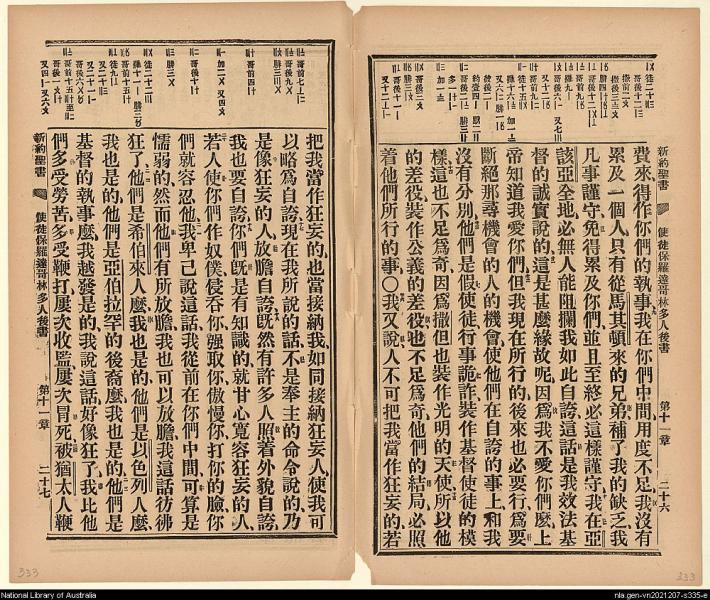 新約聖書
使徒保羅達哥林多人後書
第十一章
二十六
費來得作你們的執事我在你們中間用度不足我沒有
累及一個人只有從馬其頓來的兄弟補了我的缺乏我
凡事謹守免得累及你們並且至終必這樣謹守我在亞
該亞全地必無人能阻攔我如此自誇這話是我效法基
督的誠實說的這是甚麼緣故呢因爲我不愛你們麼上
帝知道我愛你們但我現在所行的後來也必要行爲要
斷絕那尋機會的人的機會使他們在自誇的事上和我
沒有分別他們是假使徒行事詭詐裝作基督使徒的模
樣這也不足爲奇因爲撒但也裝作光明的天使所以他
的差役裝作公義的差役也不足爲奇他們的結局必照
着他們所行的事○我又說人不可把我當作狂妄的若
把我當作狂妄的也當接納我如同接納狂妄人使我可
以略爲自誇現在我所說的話不是奉主的命令說的乃
是像狂妄的人放膽自誇旣然有許多人照着外貌自誇
我也要自誇你們旣是有知識的就甘心寬容狂妄的人
若人使你們作奴僕侵吞你强取你傲慢你打你的臉你
們就容忍他我卑己說這話我從前在你們中間可算是
懦弱的然而他們有所放膽我也可以放膽我這話彷彿
狂了他們是希伯來人麼我也是的他們是以色列人麼
我也是的他們是亞伯拉罕的後裔麼我也是的他們是
基督的執事麼我越發是的我說這話好像狂了我比他
們多受勞苦多受鞭打屢次收監屢次冒死被猶太人鞭
新約聖書
使徒保羅達哥林多人後書
第十一章
二十七
333
333
National Library of Australia
nla.gen-vn2021207-s335-e